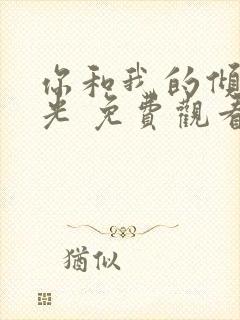 你和我的傾
光 免費觀看
猶似